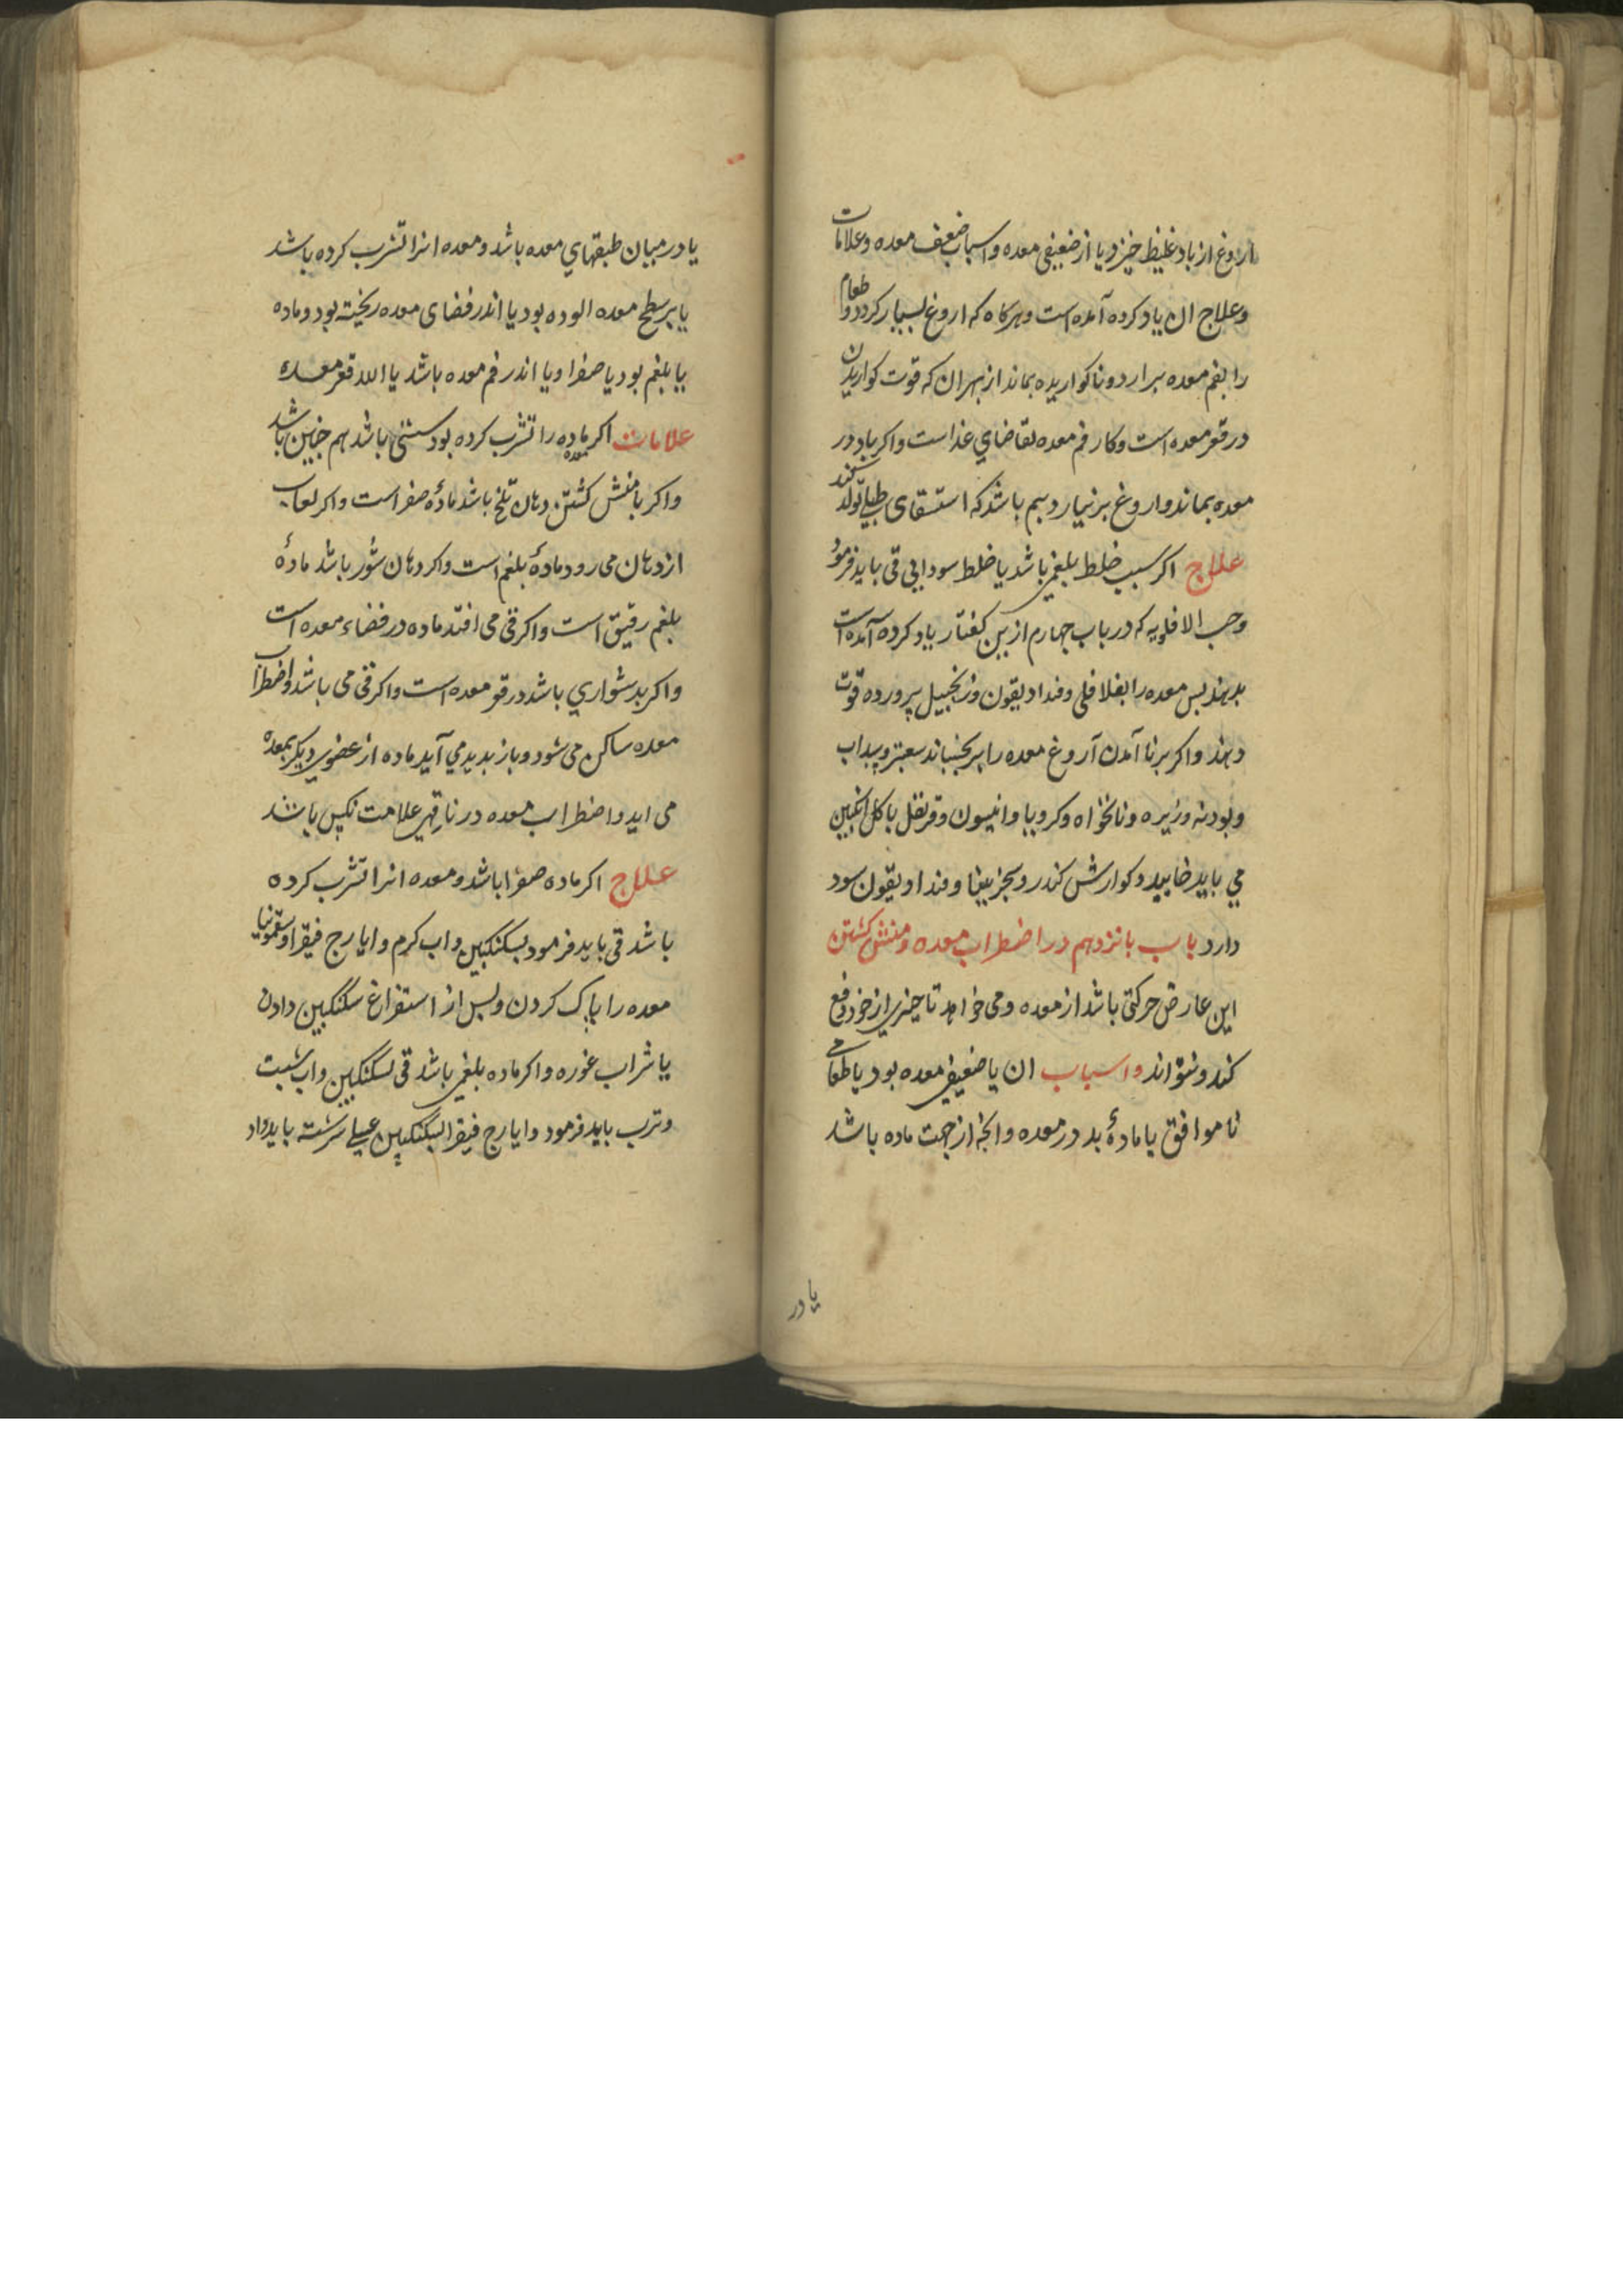 اروغ از باد غلیظ خیزد یا از ضعیفی معده و اسباب ضعف معده و علامات
و علاج ان یاد کرده آمده است و هرکاه که اروغ بسیار کردد و طعام
را بفم معده برارد و ناکواریده بماند از بهر ان که قوت کواریدن
در قعر معده است و کار فم معده تقاضای غذا است و اکر باد در
معده بماند و اروغ بر نیارد بیم باشد که استسقای طبلی تولد کند
علاج اکر سبب خلط بلغمی باشد یا خلط سودایی قی باید فرمود
و حب الافاویه که در باب چهارم ازین کفتار یاد کرده آمده است
بدهند بس معده را بفلافلی و فندادیقون و زنجبیل پرورده قوت
دهند و اکر برنا آمدن آروغ معده را بر بجنباند سعتر و سداب
و بودنه و زیره و نانخواه و کرویا و انیسون و قرنفل با کل انکبین
می باید خایید و کوارش کندر و سجزینیا و فندادیقون سود
دارد باب بانزدهم در اضطراب معده و منش کشتن
این عارض حرکتی باشد از معده و می خواهد تا چیزی از خود دفع
کند و نتواند و اسباب ان یا ضعیفی معده بود یا طعامی
ناموافق یا مادهٔ بد در معده و انجه از جهت ماده باشد
یا در
یا در میان طبقهای معده باشد و معده انرا تشرب کرده باشد
یا بر سطح معده الوده بود یا اندر فضای معده ریخته بود و ماده
یا بلغم بود یا صفرا و یا اندر فم معده باشد یا اندر قعر معده
علامات اکر ماده را معده تشرب کرده بود باشد هم جنین باشد
و اکر با منش کشتن دهان تلخ باشد مادهٔ صفرا است و اکر لعاب
از دهان می رود مادهٔ بلغم است و اکر دهان شور باشد مادهٔ
بلغم رقیق است و اکر قی می افتد ماده در فضاء معده است
و اکر بدشواری باشد در قعر معده است و اکر قی می باشد و اضطراب
معده ساکن می شود و باز بدید می آید ماده از عضوی دیکر بمعده
می اید و اضطراب معده در ناقهی علامت نکس باشد
علاج اکر ماده صفرا باشد و معده انرا تشرب کرده
باشد قی باید فرمود بسکنکبین و اب کرم و ایارج فیقرا و سقمونیا
معده را باک کردن و بس از استفراغ سکنکبین دادن
یا شراب غوره و اکر ماده بلغمی باشد قی بسکنکبین و اب شبت
و ترب باید فرمود و ایارج فیقرا بسکنکبین عسلی سرشته باید داد